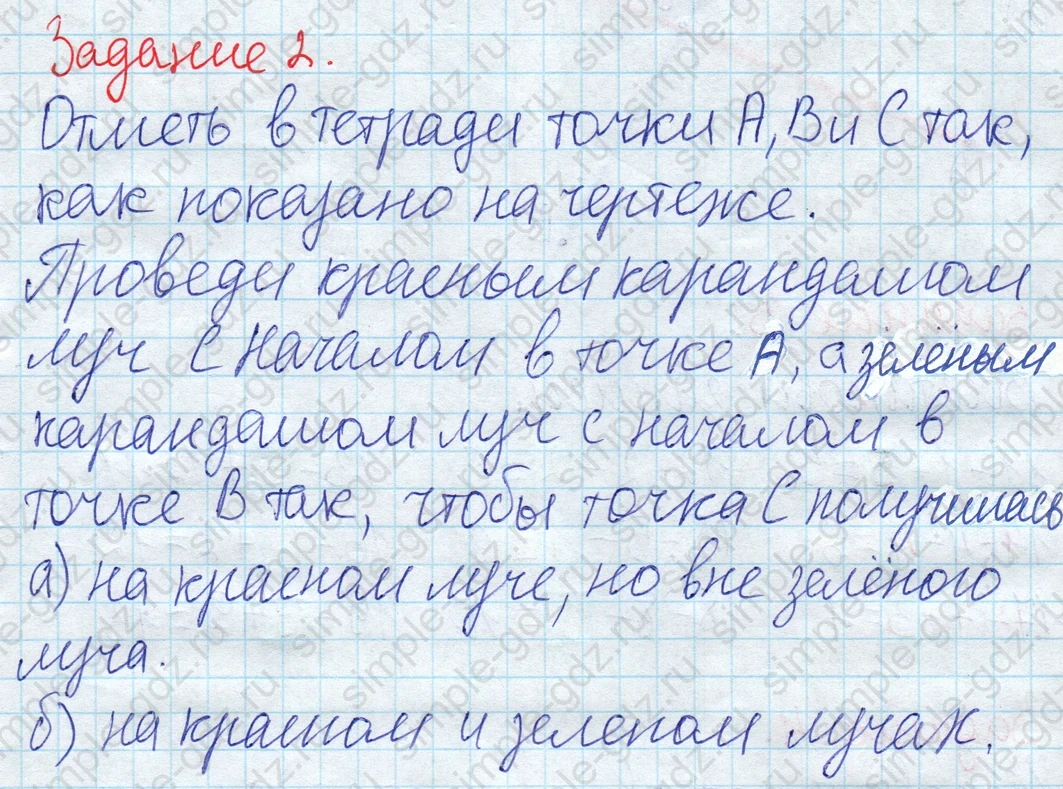 Задание 2.
Отметь в тетради точки А, В и С так,
как показано на чертеже.
Проведи красным карандашом
луч с началом в точке А, а зелёным
карандашом луч с началом в
точке В так, чтобы точка С получилась
а) на красном луче, но вне зелёного
луча.
б) на красном и зеленом лучах.